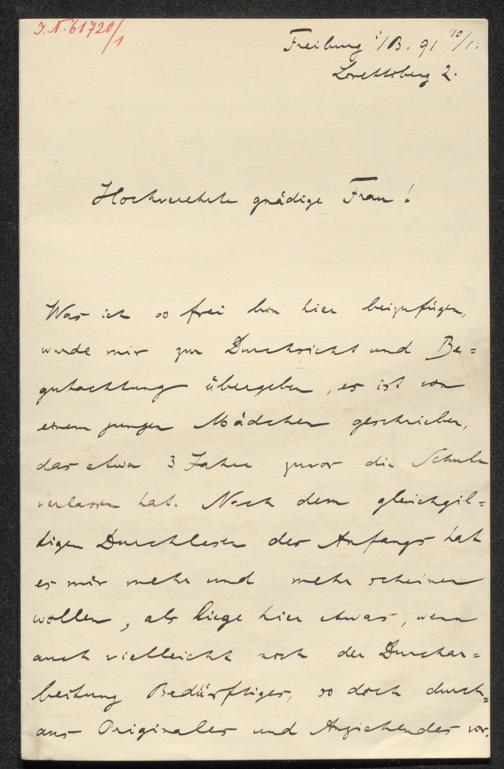 J.N. 61720/1
Freiburg i/B. 91 10/1.
Lorettoberg 2.
Hochverehrte gnädige Frau!
Was ich so frei bin hier beizufügen,
wurde mir zur Durchsicht und Be=
gutachtung übergeben, es ist von
einem jungen Mädchen geschrieben,
das etwa 3 Jahre zuvor die Schule
verlassen hat. Nach dem gleichgil=
tigen Durchlesen des Anfangs hat
es mir mehr und mehr scheinen
wollen, als liege hier etwas, wenn
auch vielleicht noch der Durchar=
beitung Bedürftiges, so doch durch=
aus Originales und Anziehendes vor.